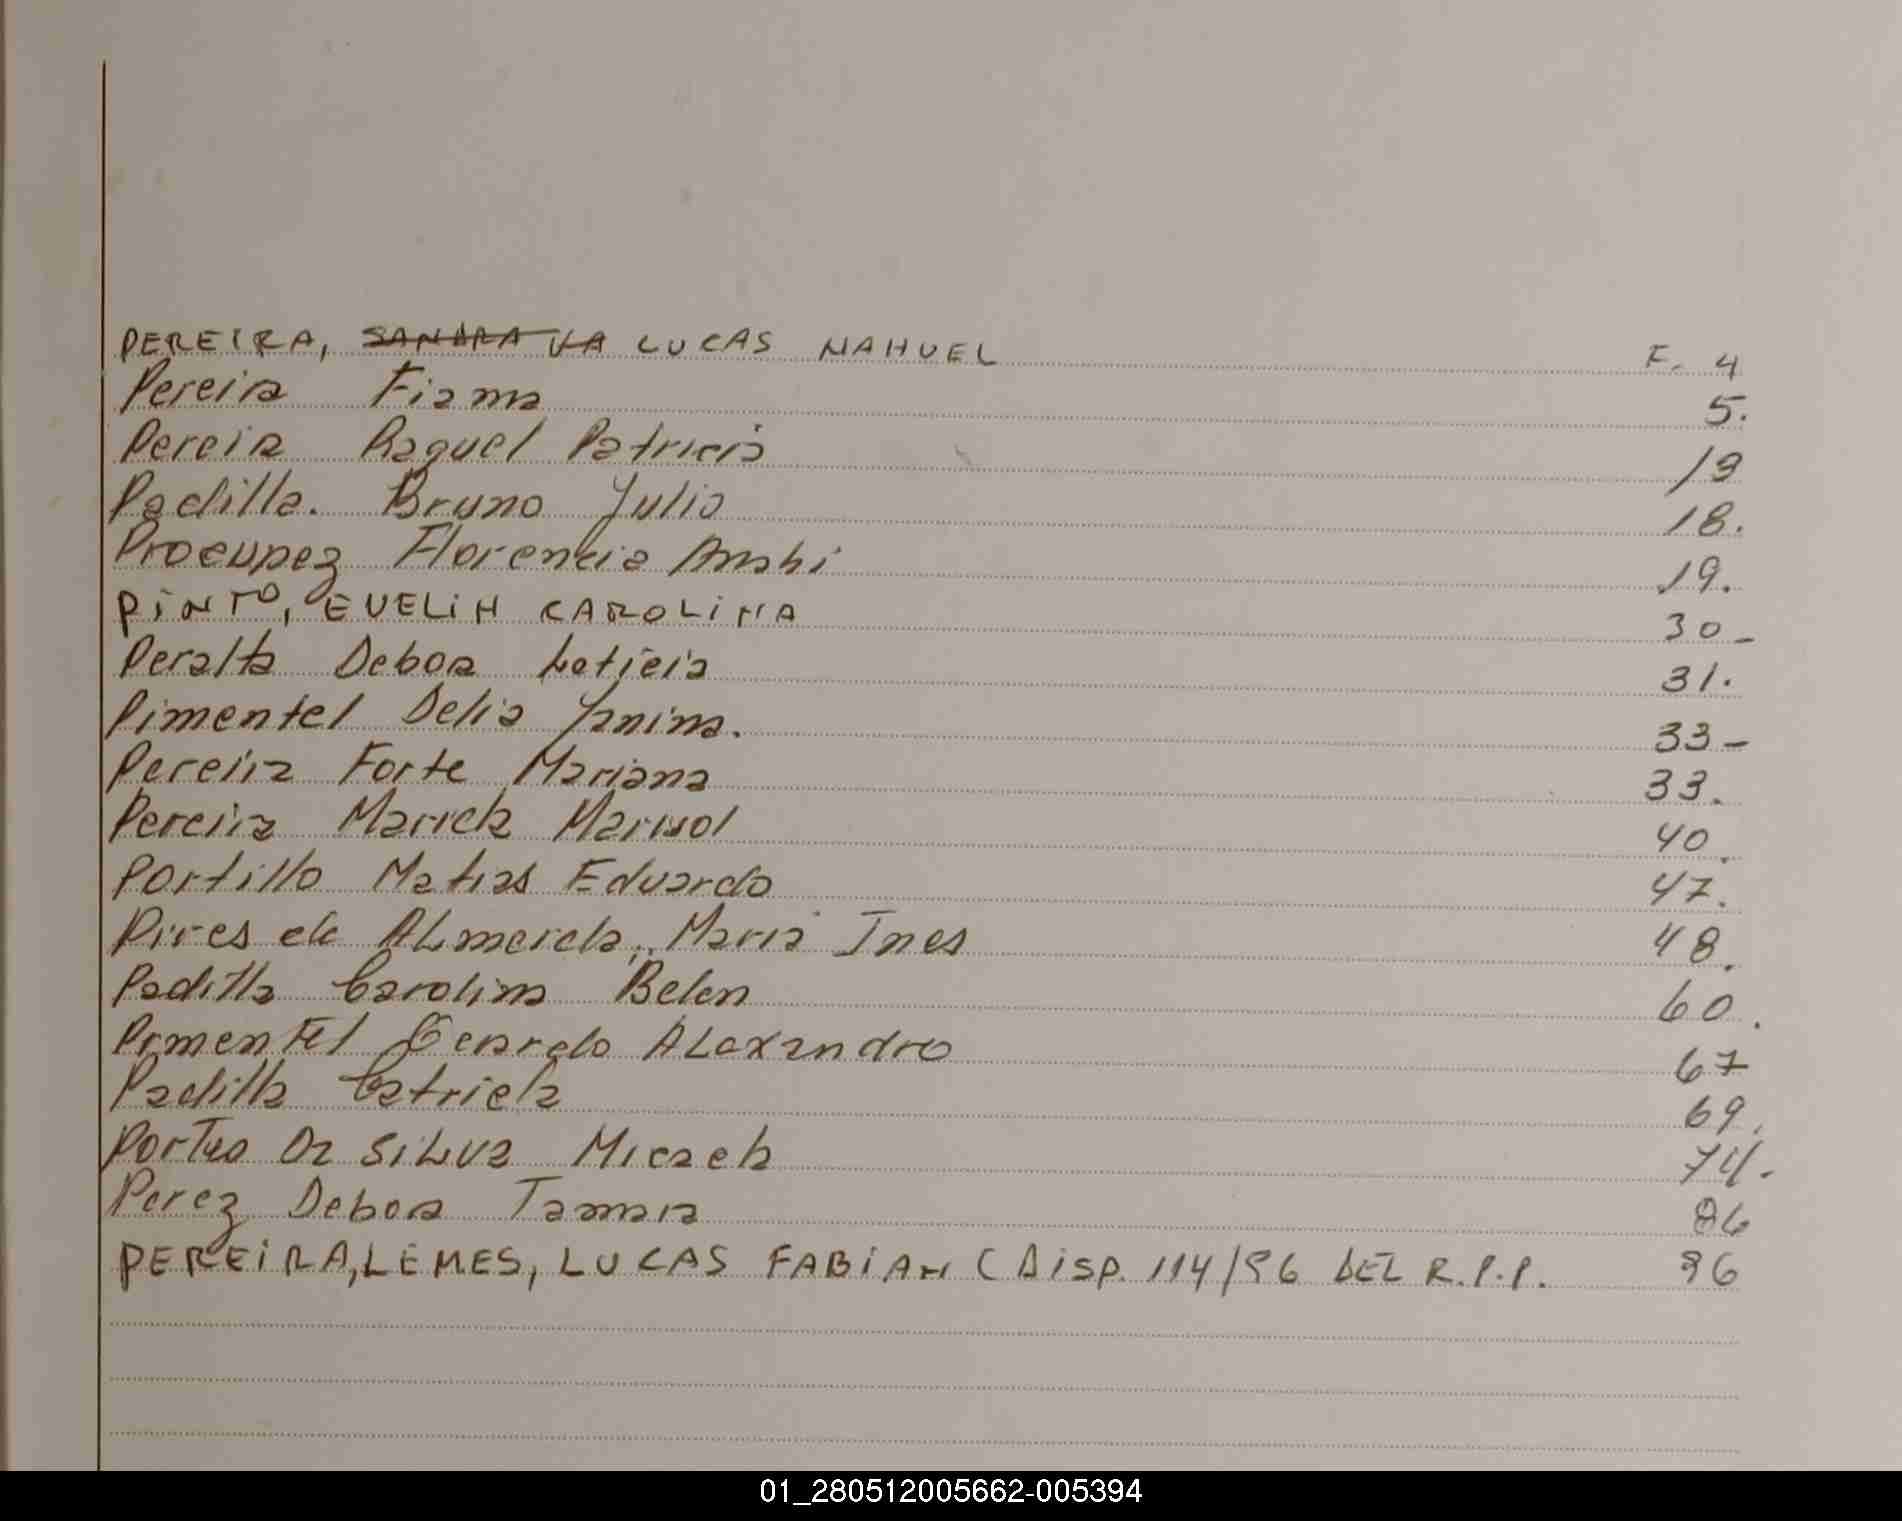 PEREIRA, SANDRA VA LUCAS NAHUEL F. 4
Pereira Fiama 5.
Pereira Raquel Patricia 19
Padilla. Bruno Julio 18.
Procupez Florencia Anahi 19.
PINTO, EVELIN CAROLINA 30-
Peralta Debora Leticia 31.
Pimentel Delia Yanina. 33-
Pereira Forte Mariana 33.
Pereira Mariela Marisol 40.
Portillo Matias Eduardo 47.
Pires de ALmeida, Maria Ines 48.
Padilla Carolina Belen 60.
Pimentel Gerardo ALexandro 67
Padilla Catriela 69.
Da SiLva Micaela 74.
Perez Debora Tamara 86
PEREIRA, LEMES, LUCAS FABIAN (DISP. 114/96 DEL R.P.P. 96
01_280512005662-005394